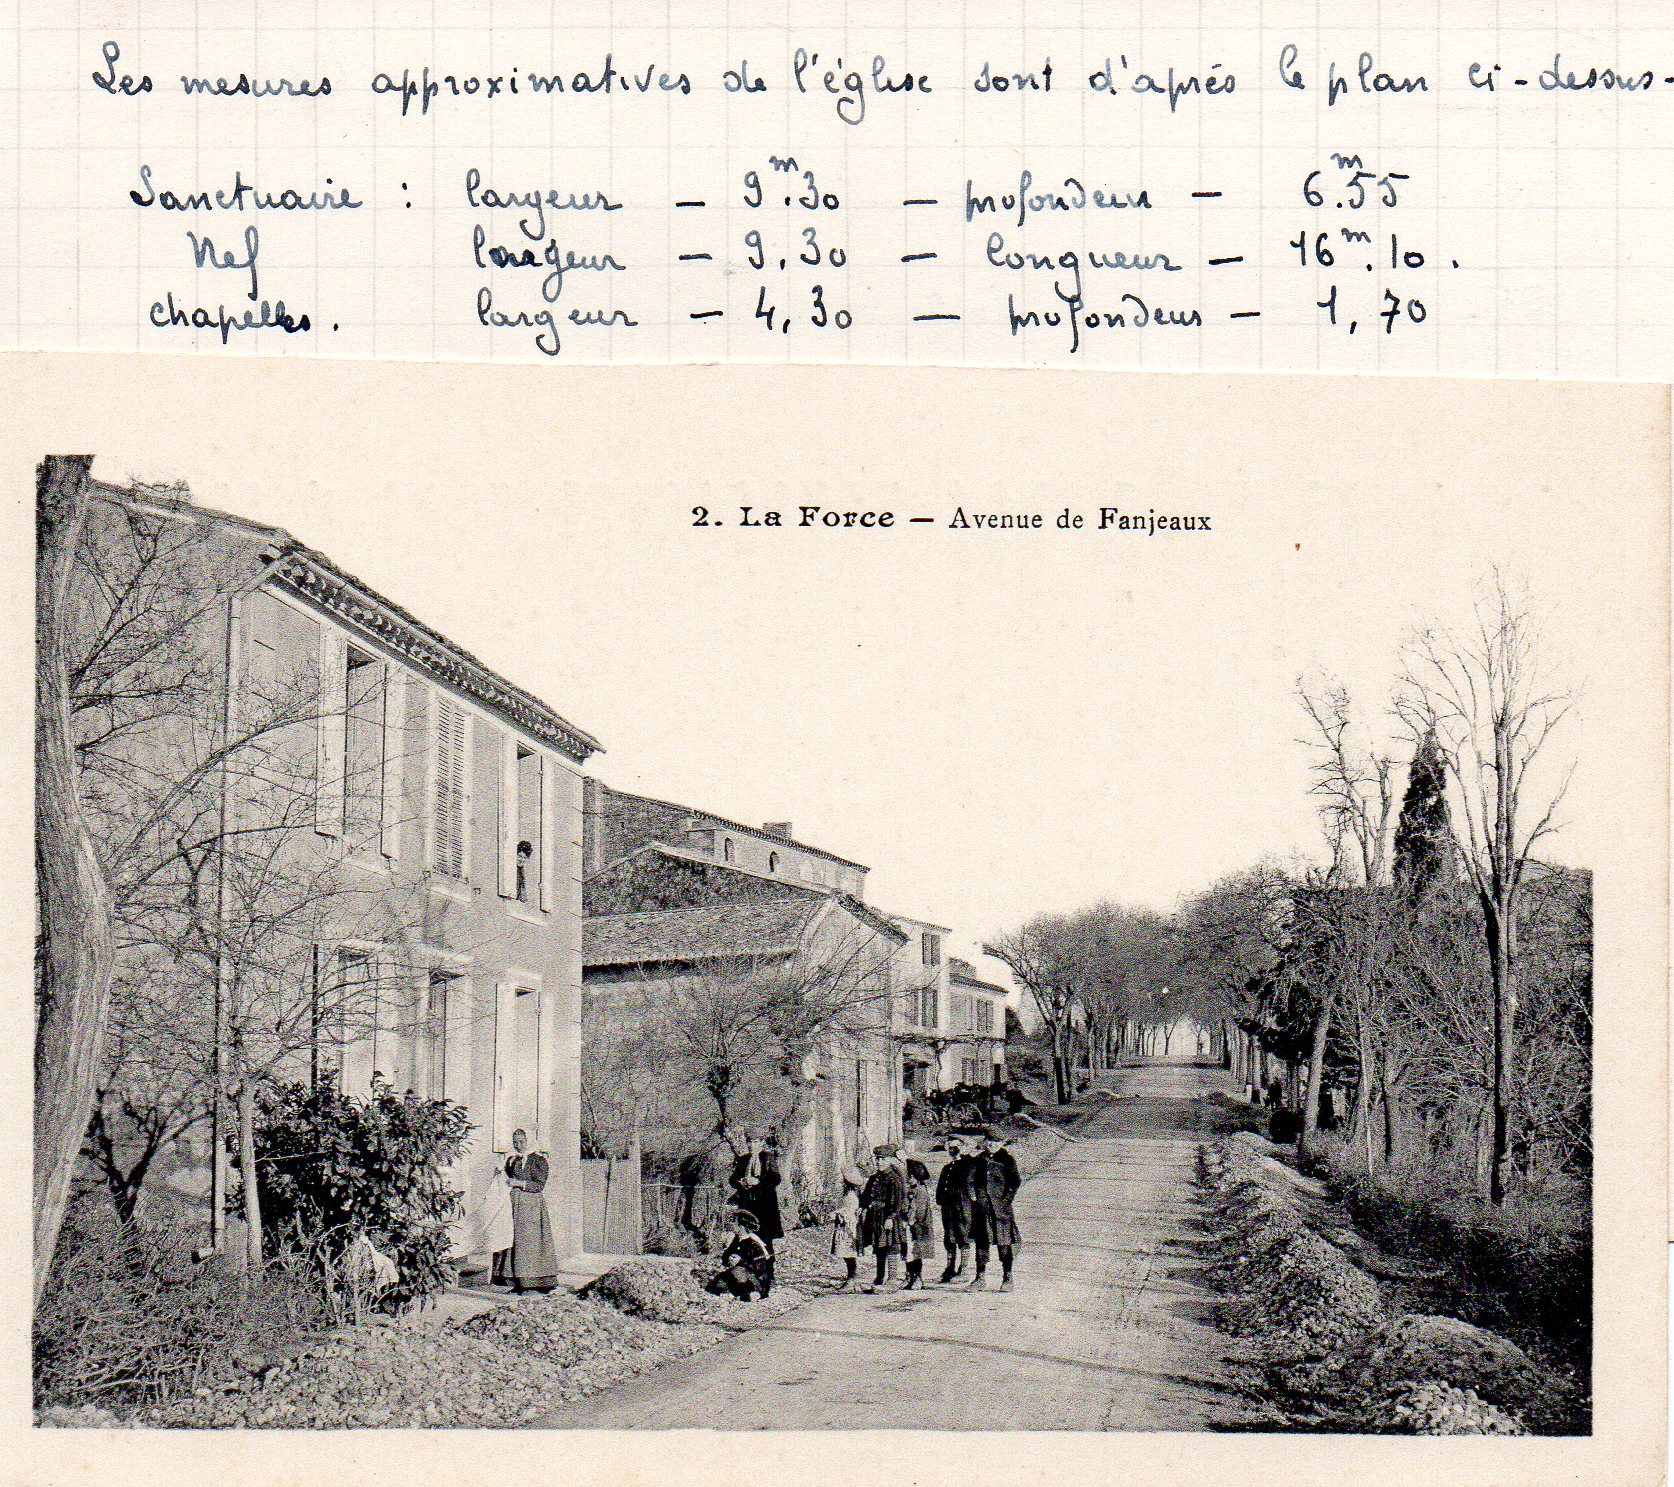 Les mesures approximatives de l'église sont d'après le plan ci-dessus-
Sanctuaire : largeur — 9.m30 — profondeur — 6.m55
Nef largeur — 9,30 — longueur — 16m.10.
chapelles. largeur — 4,30 — profondeur — 1,70
2. La Force — Avenue de Fanjeaux